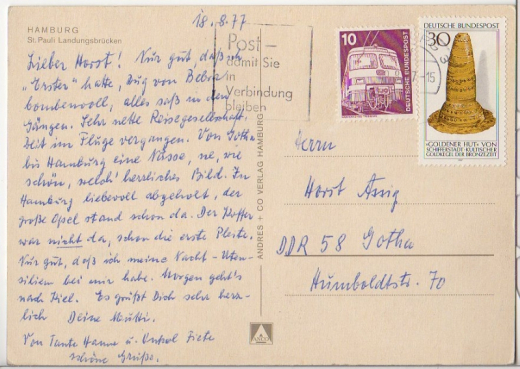 HAMBURG
St. Pauli Landungsbrücken
18.8.77
Lieber Horst! Nur gut, daß ich
"Erster" hatte, Zug von Bebra
bombenvoll, alles saß in den
Gängen. Sehr nette Reisegesellschaft.
Zeit im Fluge vergangen. Von Gotha
bis Hamburg eine Nässe, ne, wie
schön, welch' herrliches Bild. In
Hamburg liebevoll abgeholt, der
große Opel stand schon da. Der Koffer
war nicht da, schon die erste Pleite.
Nur gut, daß ich meine Nacht-Uten-
silien bei mir habe. Morgen geht's
nach Kiel. Es grüßt Dich sehr herz-
lich Deine Mutti.
Von Tante Hanne u. Onkel Fiete
schöne Grüße.
ANDRES + CO VERLAG HAMBURG
Post –
damit Sie
in
Verbindung
bleiben
10
DEUTSCHE BUNDESPOST
DEUTSCHE BUNDESPOST
30
-15
»GOLDENER HUT« VON
SCHIFFERSTADT · KULTISCHER
GOLDKEGEL DER BRONZEZEIT
Herrn
Horst
DDR 58 Gotha
Humboldtstr. 70